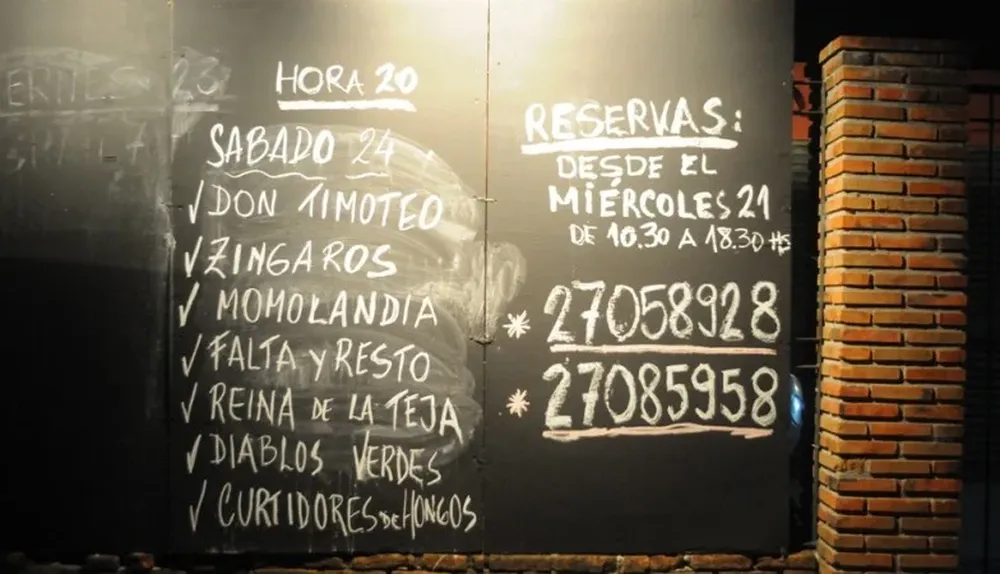 23
HORA 20
SABADO 24
✓ DON TIMOTEO
✓ ZINGAROS
✓ MOMOLANDIA
✓ FALTA Y RESTO
✓ REINA DE LA TEJA
✓ DIABLOS VERDES
✓ CURTIDORES DE HONGOS
RESERVAS:
DESDE EL
MIÉRCOLES 21
DE 10.30 A 18.30 HS
* 27058928
* 27085958